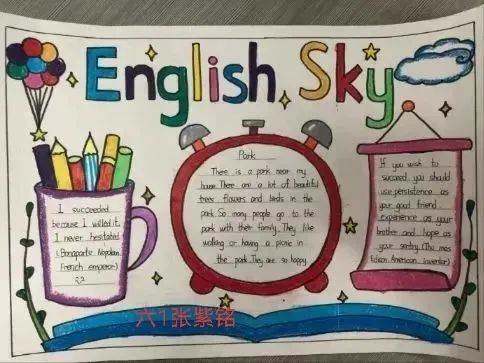 English Sky
I succeeded
because I willed it.
I never hesitated
(Bonaparte Napoleon
French emperor)
Park
There is a park near my
house. There are a lot of beautiful
trees flowers and birds in the
park. So many people go to the
park with their family. They like
walking or having a picnic in
the park. They are so happy.
If you wish to
succeed, you should
use persistence as
your good friend
experience as your
brother and hope as
your sentry. (Tho mas
Edison. American inventor)
六1张紫铭